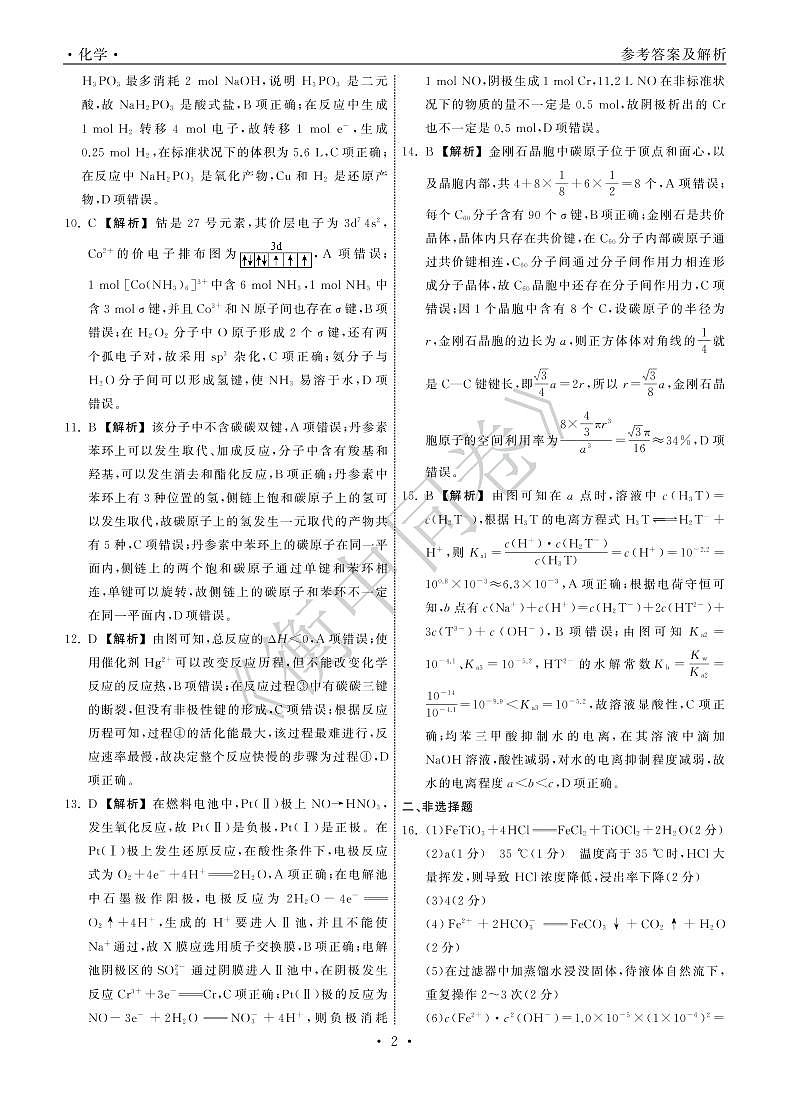 ·化学·
参考答案及解析
H₃PO₃ 最多消耗 2 mol NaOH,说明 H₃PO₃ 是二元
酸,故 NaH₂PO₃ 是酸式盐,B项正确;在反应中生成
1 mol H₂ 转移 4 mol 电子,故转移 1 mol e⁻,生成
0.25 mol H₂,在标准状况下的体积为 5.6 L,C项正确;
在反应中 NaH₂PO₃ 是氧化产物,Cu 和 H₂ 是还原产
物,D项错误。
10. C 【解析】钴是 27 号元素,其价层电子为 3d⁷4s²,
Co²⁺的价电子排布图为 3d ↑↓ ↑↓ ↑ ↑ ↑ ,A 项错误;
1 mol [Co(NH₃)₆]³⁺中含 6 mol NH₃,1 mol NH₃ 中
含 3 mol σ键,并且Co³⁺和 N 原子间也存在σ键,B项
错误;在 H₂O₂ 分子中 O 原子形成 2 个 σ键,还有两
个孤电子对,故采用 sp³ 杂化,C 项正确;氨分子与
H₂O 分子间可以形成氢键,使 NH₃ 易溶于水,D 项
错误。
11. B 【解析】该分子中不含碳碳双键,A项错误;丹参素
苯环上可以发生取代、加成反应,分子中含有羧基和
羟基,可以发生消去和酯化反应,B项正确;丹参素中
苯环上有 3 种位置的氢,侧链上饱和碳原子上的氢可
以发生取代,故碳原子上的氢发生一元取代的产物共
有 5 种,C 项错误;丹参素中苯环上的碳原子在同一平
面内,侧链上的两个饱和碳原子通过单键和苯环相
连,单键可以旋转,故侧链上的碳原子和苯环不一定
在同一平面内,D项错误。
12. D 【解析】由图可知,总反应的 ΔH<0,A项错误;使
用催化剂 Hg²⁺可以改变反应历程,但不能改变化学
反应的反应热,B项错误;在反应过程③中有碳碳三键
的断裂,但没有非极性键的形成,C项错误;根据反应
历程可知,过程④的活化能最大,该过程最难进行,反
应速率最慢,故决定整个反应快慢的步骤为过程④,D
项正确。
13. D 【解析】在燃料电池中,Pt(Ⅱ)极上 NO→HNO₃,
发生氧化反应,故 Pt(Ⅱ)是负极,Pt(Ⅰ)是正极。在
Pt(Ⅰ)极上发生还原反应,在酸性条件下,电极反应
式为 O₂+4e⁻+4H⁺══2H₂O,A项正确;在电解池
中石墨极作阳极,电极反应为 2H₂O−4e⁻══
O₂↑+4H⁺,生成的 H⁺要进入Ⅱ池,并且不能使
Na⁺通过,故 X 膜应选用质子交换膜,B项正确;电解
池阴极区的 SO₄²⁻ 通过阴膜进入Ⅱ池中,在阴极发生
反应 Cr³⁺+3e⁻══Cr,C项正确;Pt(Ⅱ)极的反应为
NO−3e⁻+2H₂O══NO₃⁻+4H⁺,则负极消耗
1 mol NO,阴极生成 1 mol Cr,11.2 L NO在非标准状
况下的物质的量不一定是 0.5 mol,故阴极析出的 Cr
也不一定是 0.5 mol,D项错误。
14. B 【解析】金刚石晶胞中碳原子位于顶点和面心,以
及晶胞内部,共 4+8×1/8+6×1/2=8 个,A 项错误;
每个 C₆₀分子含有 90 个 σ键,B项正确;金刚石是共价
晶体,晶体内只存在共价键,在 C₆₀分子内部碳原子通
过共价键相连,C₆₀分子间通过分子间作用力相连形
成分子晶体,故 C₆₀晶胞中还存在分子间作用力,C 项
错误;因 1 个晶胞中含有 8 个 C,设碳原子的半径为
r,金刚石晶胞的边长为 a,则正方体体对角线的1/4就
是 C—C 键键长,即√3/4 a=2r,所以 r=√3/8 a,金刚石晶
胞原子的空间利用率为(8×4/3πr³)/a³=√3π/16≈34%,D 项
错误。
15. B 【解析】由图可知在 a 点时,溶液中 c(H₃T)=
c(H₂T⁻),根据 H₃T的电离方程式 H₃T⇌H₂T⁻+
H⁺,则 Kₐ₁=c(H⁺)·c(H₂T⁻)/c(H₃T)=c(H⁺)=10⁻²·²=
10⁰·⁸×10⁻³≈6.3×10⁻³,A项正确;根据电荷守恒可
知,b 点有 c(Na⁺)+c(H⁺)=c(H₂T⁻)+2c(HT²⁻)+
3c(T³⁻)+c(OH⁻),B 项错误;由图可知 Kₐ₂=
10⁻⁴·¹、Kₐ₃=10⁻⁵·²,HT²⁻ 的水解常数Kₕ=K_w/Kₐ₂=
10⁻¹⁴/10⁻⁴·¹=10⁻⁹·⁹<Kₐ₃=10⁻⁵·²,故溶液显酸性,C 项正
确;均苯三甲酸抑制水的电离,在其溶液中滴加
NaOH 溶液,酸性减弱,对水的电离抑制程度减弱,故
水的电离程度 a<b<c,D项正确。
二、非选择题
16. (1)FeTiO₃+4HCl══FeCl₂+TiOCl₂+2H₂O(2分)
(2)a(1分) 35 ℃(1分) 温度高于 35 ℃时,HCl大
量挥发,则导致 HCl浓度降低,浸出率下降(2分)
(3)4(2分)
(4)Fe²⁺+2HCO₃⁻══FeCO₃↓+CO₂↑+H₂O
(2分)
(5)在过滤器中加蒸馏水浸没固体,待液体自然流下,
重复操作 2~3次(2分)
(6)c(Fe²⁺)·c²(OH⁻)=1.0×10⁻⁵×(1×10⁻⁶)²=
《衡中同卷》
·2·